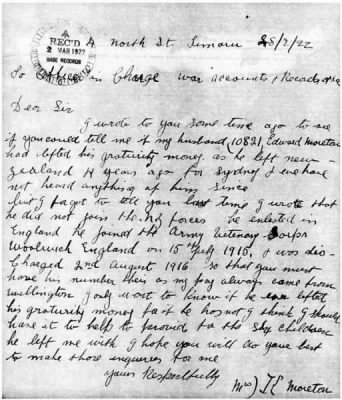 REC'D
2 MAR 1922
BASE RECORDS
North St. Timaru 28/2/22
To Officer in Charge War accounts & Records
Dear Sir
I wrote to you some time ago to see
if you could tell me if my husband (10821, Edward Moreton
had lefted his graturity money. as he left new-
Zealand 4 years ago for Sydney & we have
not heard anything of him Since
but I forgot to tell you last time I wrote that
he did not join the N.Z forces he enlisted in
England he joined the Army Vetenay Corps
Woolwich England on 15th July 1915, & was dis-
Charged 2nd August 1916 so that you must
have his number their as my pay always came from
Wellington I only want to know if he ever lefted
his graturity money for if he has not I think I should
have it to help to provid to the six children
he left me with I hope you will do your best
to make those enquires for me
yours Respectfully
Mrs J E Moreton